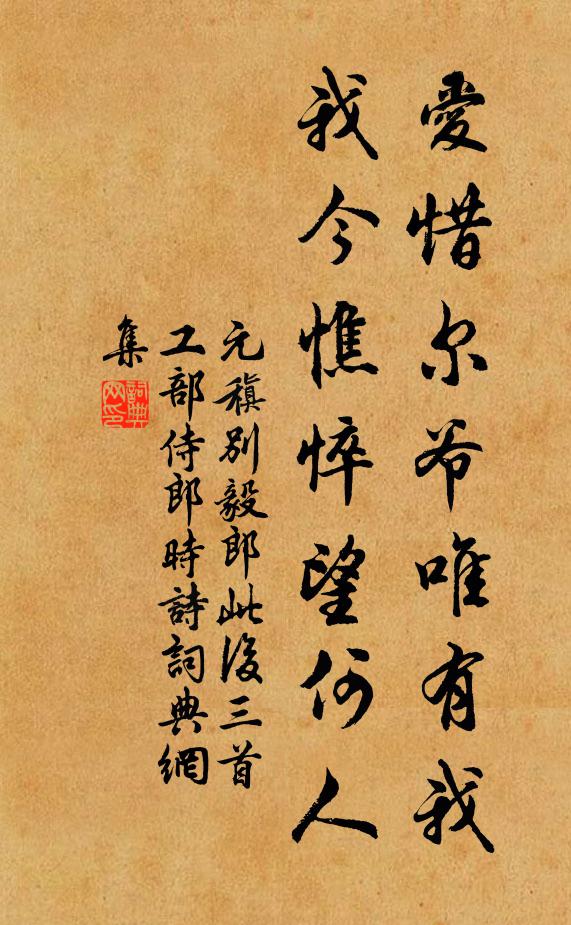 愛惜尔爷唯有我
我今憔悴望何人
元稹别毅郎此後三首
工部侍郎時詩詞典網
集
詞典網印